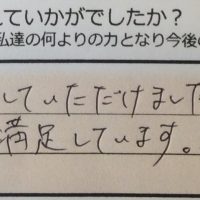 ていかがでしたか?
私達の何よりの力となり今後の
していただけました
満足しています。